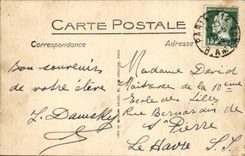 CARTE POSTALE
Correspondance
Adresse
PARIS
Bon souvenirs
de votre élève
Madame David
Maîtresse de la 10ème
Ecole des filles
Rue Bernardin de
St Pierre
Le Havre S. I.